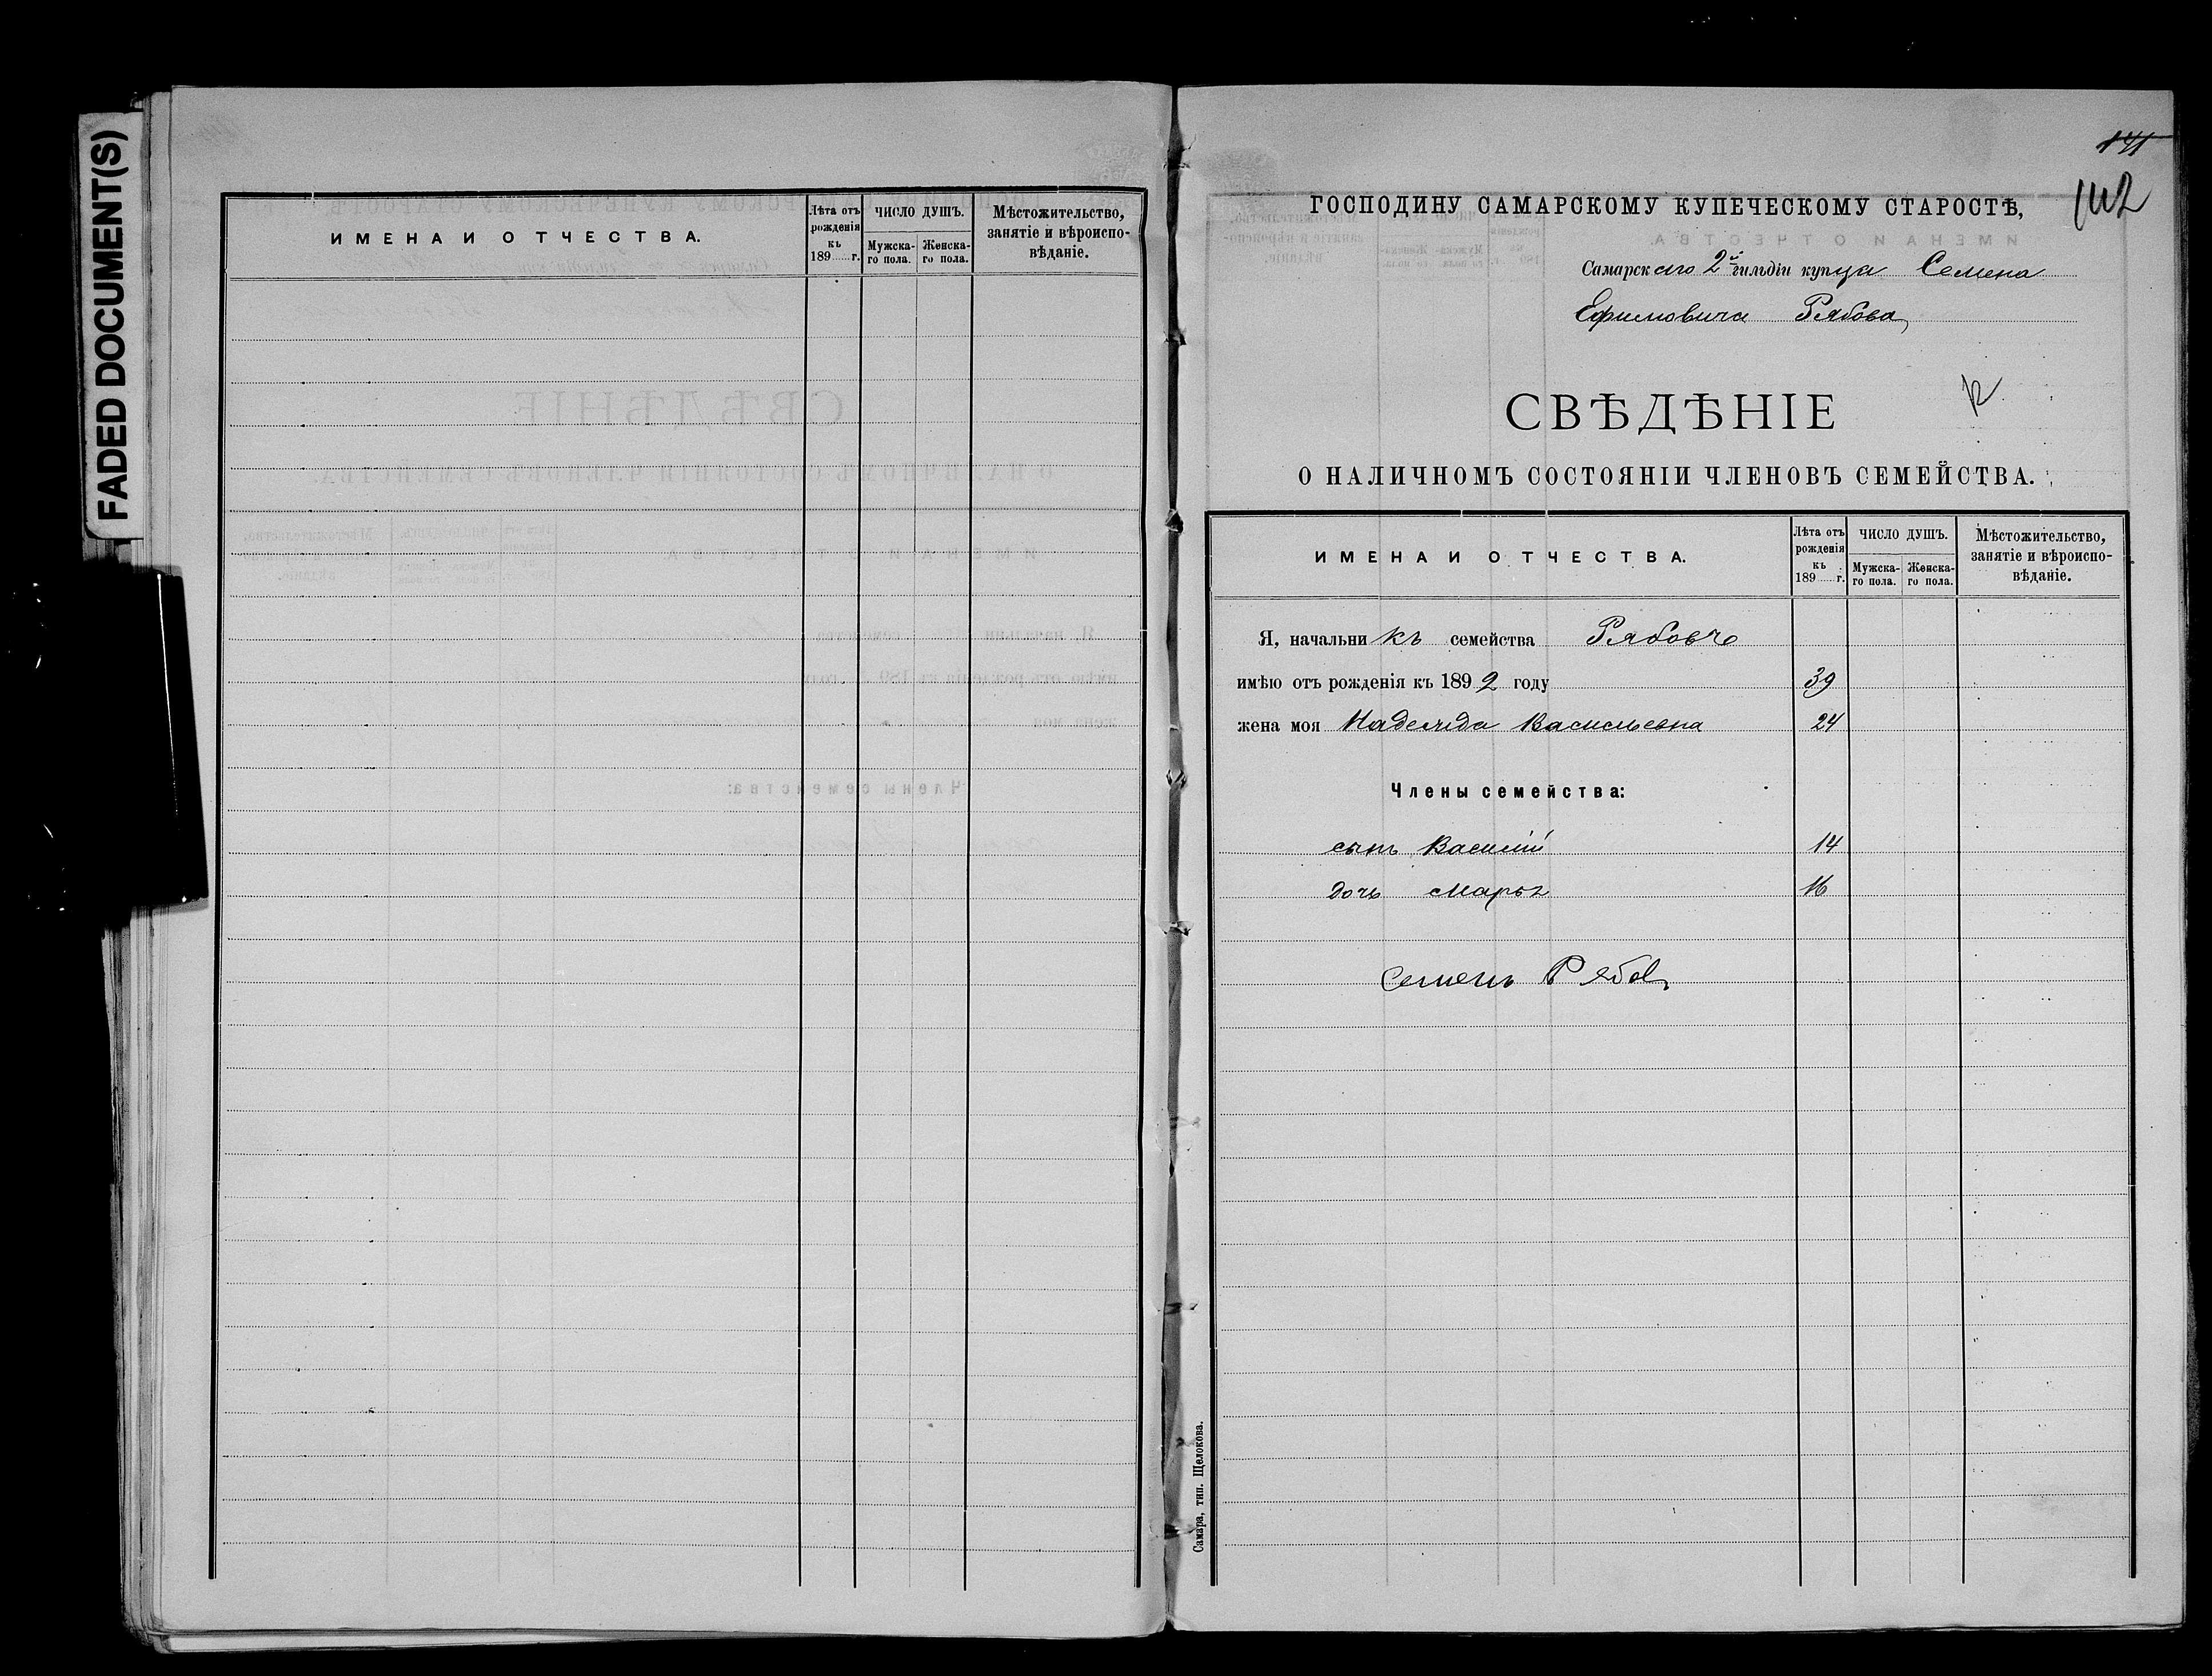 FADED DOCUMENT(S)
ИМЕНА И ОТЧЕСТВА.
Лѣта отъ рожденія къ 189......г.
ЧИСЛО ДУШЪ.
Мужска-го пола.
Женска-го пола.
Мѣстожительство, занятіе и вѣроиспо-вѣданіе.
141
142
ГОСПОДИНУ САМАРСКОМУ КУПЕЧЕСКОМУ СТАРОСТѢ,
Самарскаго 2й гильдіи купца Семена
Ефимовича Рябова
СВѢДѢНІЕ
О НАЛИЧНОМЪ СОСТОЯНІИ ЧЛЕНОВЪ СЕМЕЙСТВА.
ИМЕНА И ОТЧЕСТВА.
Лѣта отъ рожденія къ 189......г.
ЧИСЛО ДУШЪ.
Мужска-го пола.
Женска-го пола.
Мѣстожительство, занятіе и вѣроиспо-вѣданіе.
Я, начальникъ семейства Рябовъ
имѣю отъ рожденія къ 1892 году 39
жена моя Надежда Васильевна 24
Члены семейства:
сынъ Василій 14
дочь Марья 16
Семенъ Рябов
Самара, тип. Щелокова.